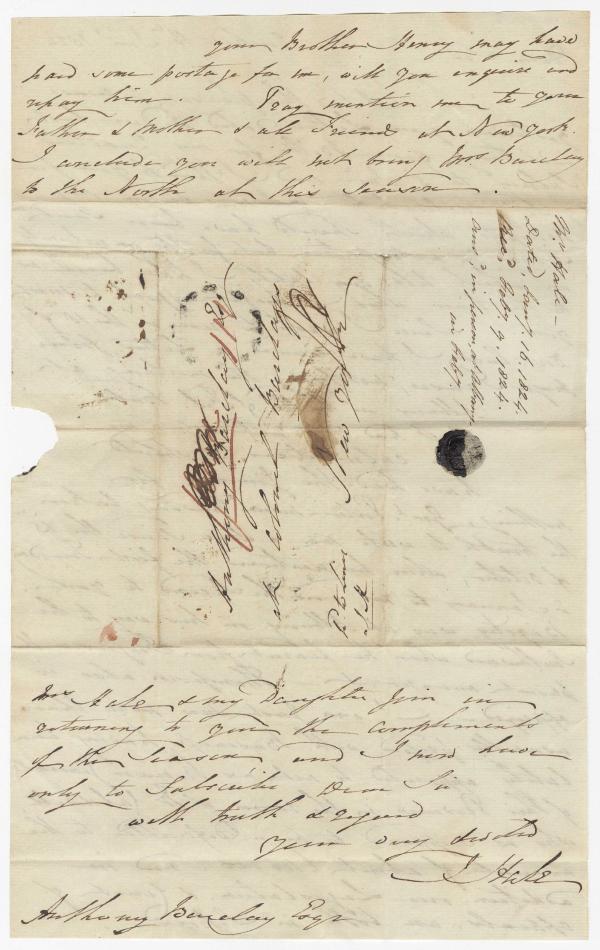 your Brother Henry may have
paid some postage for me, will you enquire and
repay him. Pray mention me to your
Father & Mother & all Friends at New York.
I conclude you will not bring Mrs Barclay
to the North at this season.
Mr Hale –
Dated Jany 16. 1824.
Rec'd Feby 9. 1824.
Ans'd in person, at
in Feby.
Anthony Barclay Esqr
at Colonel Barclays
New York
J. H.
Mrs Hale & my Daughter join in
returning to you the compliments
of the Season and I now have
only to Subscribe Dear Sir
with truth & regard
Your very devoted
J Hale
Anthony Barclay Esqr